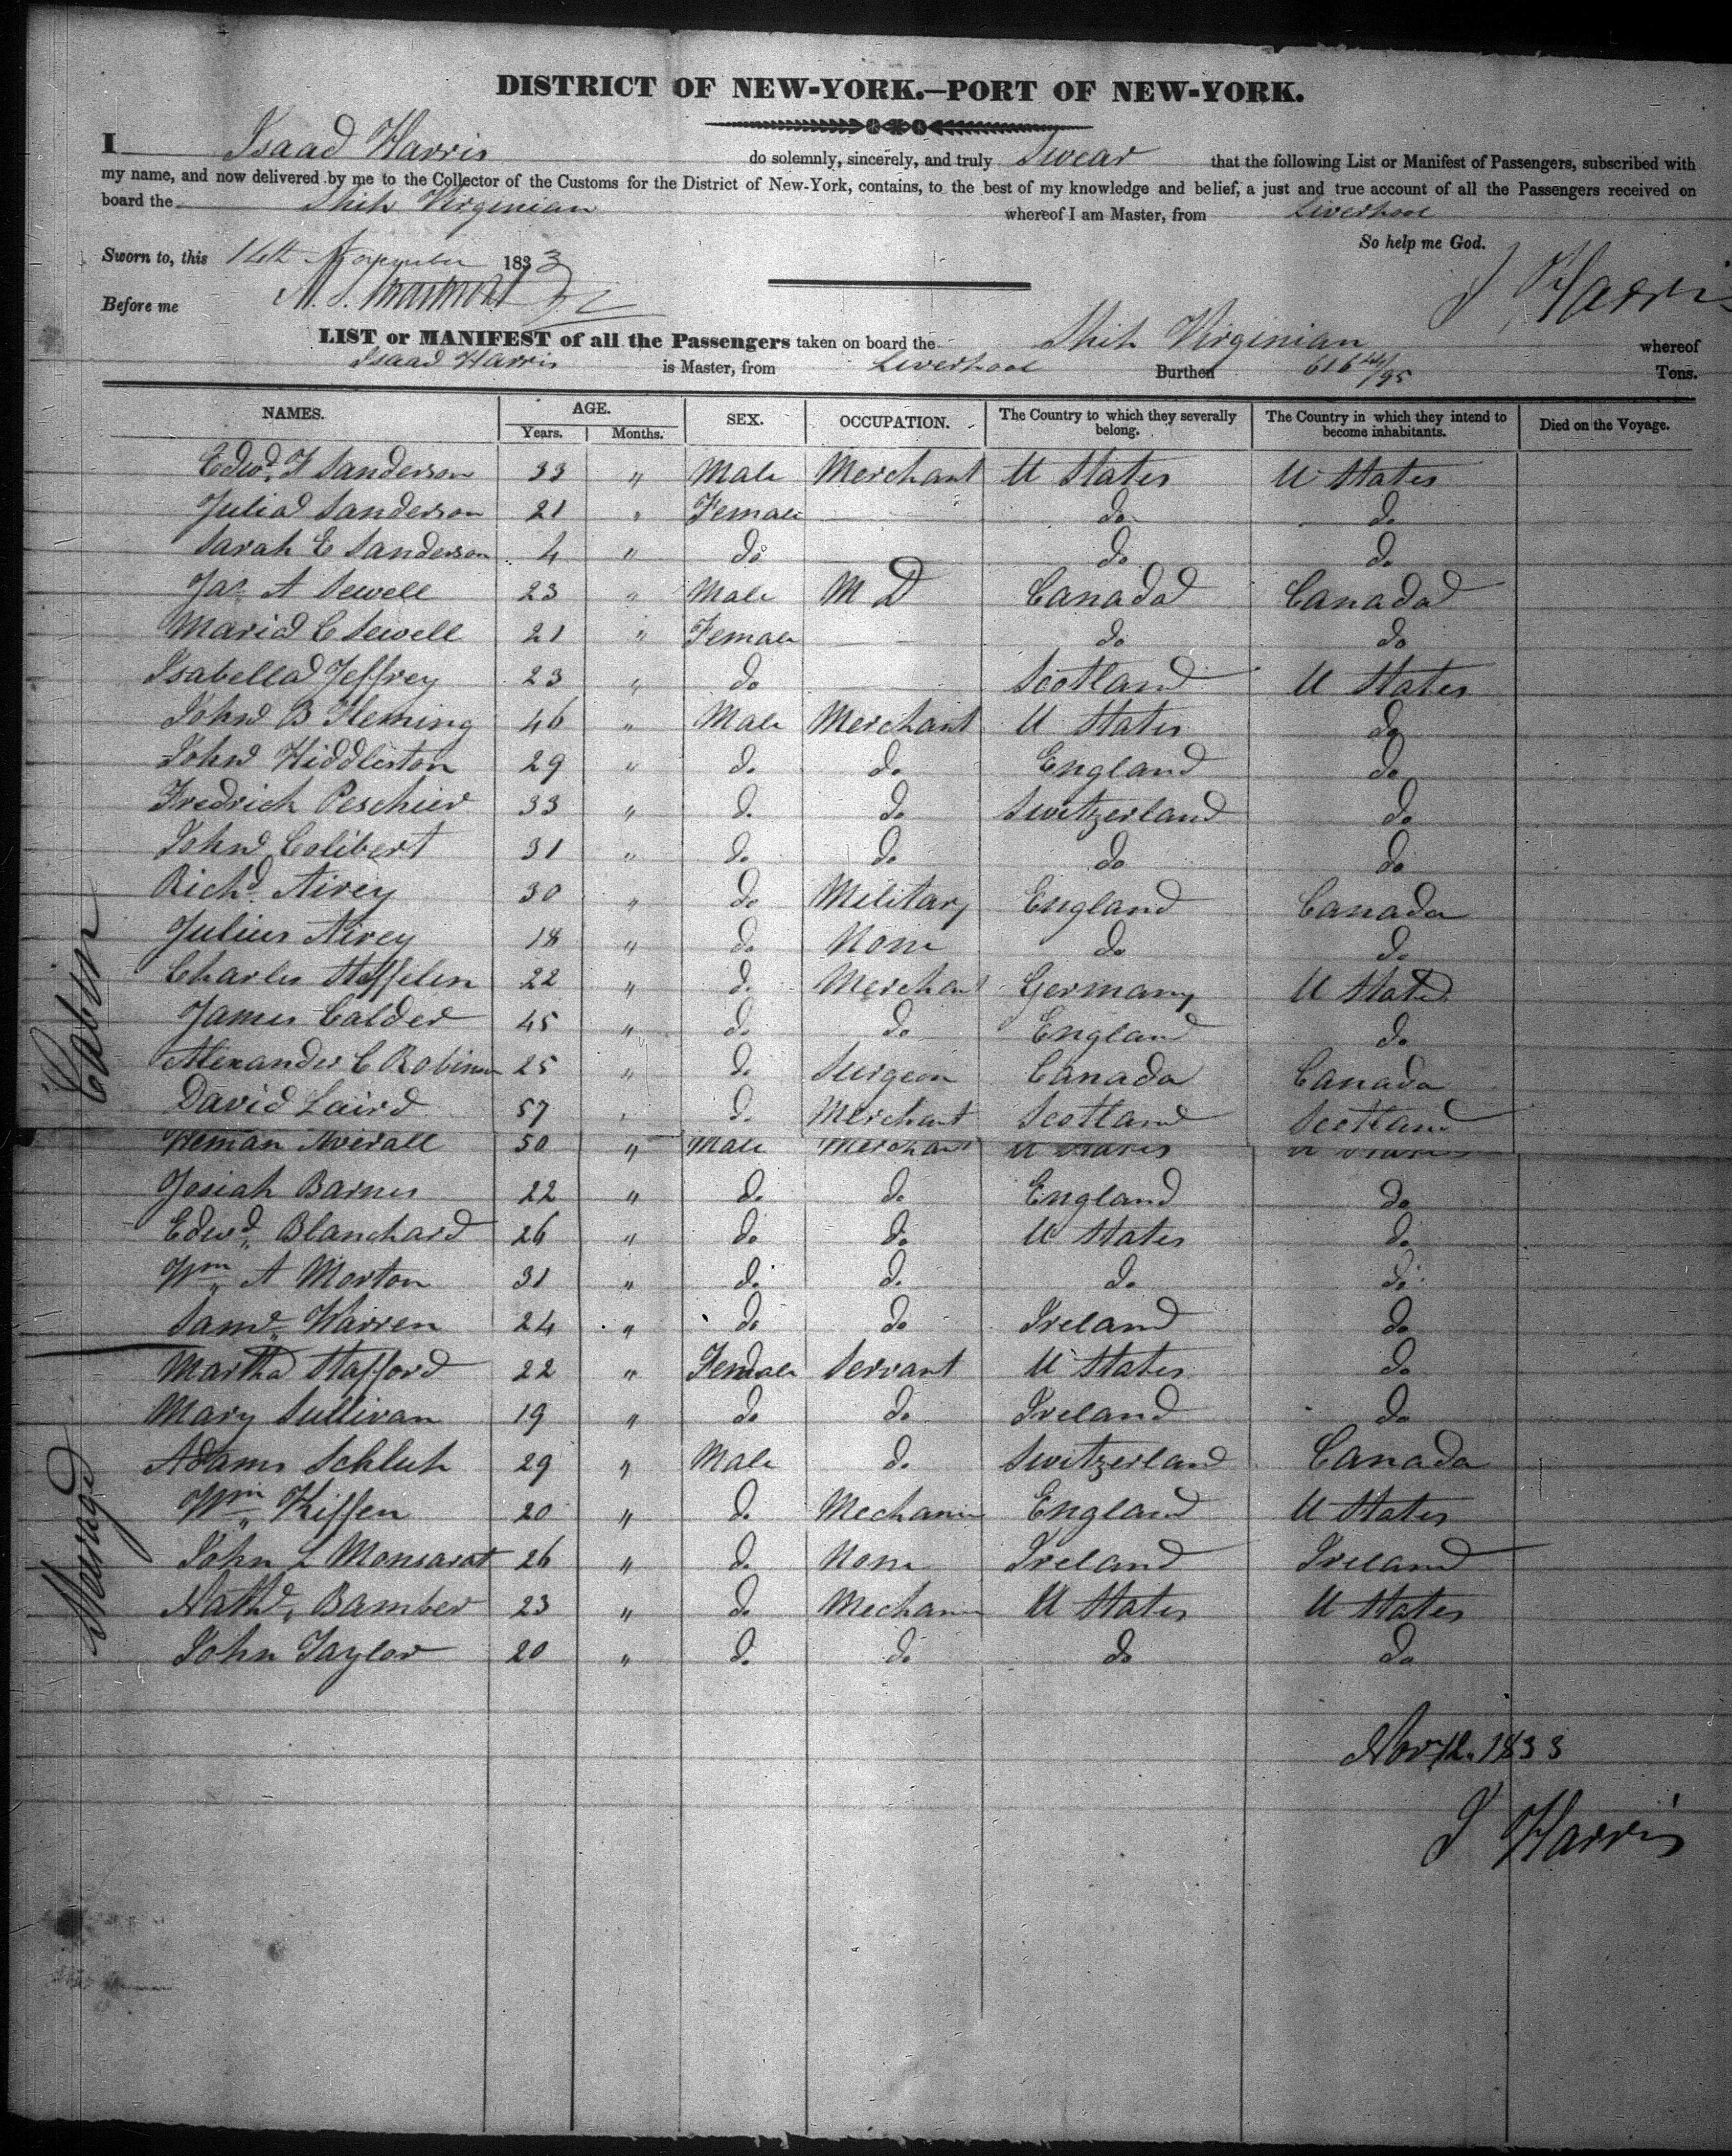 DISTRICT OF NEW-YORK.—PORT OF NEW-YORK.
I Isaac Harris do solemnly, sincerely, and truly Swear that the following List or Manifest of Passengers, subscribed with
my name, and now delivered by me to the Collector of the Customs for the District of New-York, contains, to the best of my knowledge and belief, a just and true account of all the Passengers received on
board the Ship Virginian whereof I am Master, from Liverpool
So help me God.
Sworn to, this November 1833
I Harris
Before me
LIST or MANIFEST of all the Passengers taken on board the Ship Virginian whereof
Isaac Harris is Master, from Liverpool Burthen 616 /95 Tons.
NAMES. AGE. Years. Months. SEX. OCCUPATION. The Country to which they severally belong. The Country in which they intend to become inhabitants. Died on the Voyage.
Cabin
Edwd. F Sanderson 33 " Male Merchant U States U States
Julia Sanderson 21 " Female — do do
Sarah E Sanderson 4 " do do do
Jas A Sewell 23 " Male M D Canada Canada
Maria C Sewell 21 " Female — do do
Isabella Jeffrey 23 " do Scotland U States
John B Fleming 46 " Male Merchant U States do
John Hiddleston 29 " do do England do
Fredrich Peschier 33 " do do Switzerland do
John Colibert 31 " do do do do
Richd. Airey 30 " do Military England Canada
Julius Airey 18 " do None do do
Charles Steffelin 22 " do Merchant Germany U States
James Calder 45 " do do England do
Alexander C Robinson 25 " do Surgeon Canada Canada
David Laird 57 " do Merchant Scotland Scotland
Heman Averall 50 " Male Merchant U States U States
Josiah Barnes 22 " do do England do
Edwd. Blanchard 26 " do do U States do
Wm. A Morton 31 " do do do do
Saml. Warren 24 " do do Ireland do
Steerage
Martha Stafford 22 " Female Servant U States do
Mary Sullivan 19 " do do Ireland do
Adams Schluh 29 " Male do Switzerland Canada
Wm. Kiffen 20 " do Mechanic England U States
John L Monsarat 26 " do None Ireland Ireland
Nathl. Bamber 23 " do Mechanic U States U States
John Taylor 20 " do do do do
Nov 12. 1833
I Harris